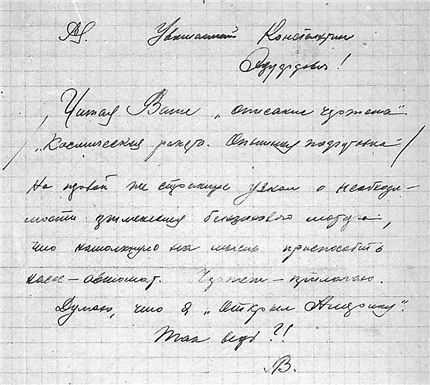 Уважаемый Константин
Эдуардович!
Читая Ваше „описание чертежа"
„Космическая ракета. Опытная подготовка"
На первой же странице узнал о необходи-
мости бензинового мотора,
что натолкнуло на мысль приспособить
насос-автомат. Чертеж - прилагаю.
Думаю, что я „Открыл Америку".
Так ведь?!!